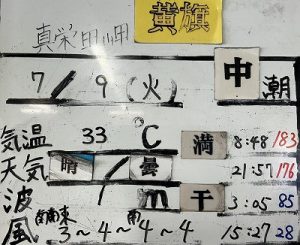 黄旗
真栄田岬
7/9(火) 中潮
気温 33℃ 満 8:48 183
天気 晴/曇 21:57 176
波 1m 干 3:05 85
風 南南東3~4~南4~4 15:27 28